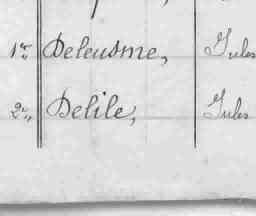 1er, Deleusme, Jules
2e, Delile, Jules